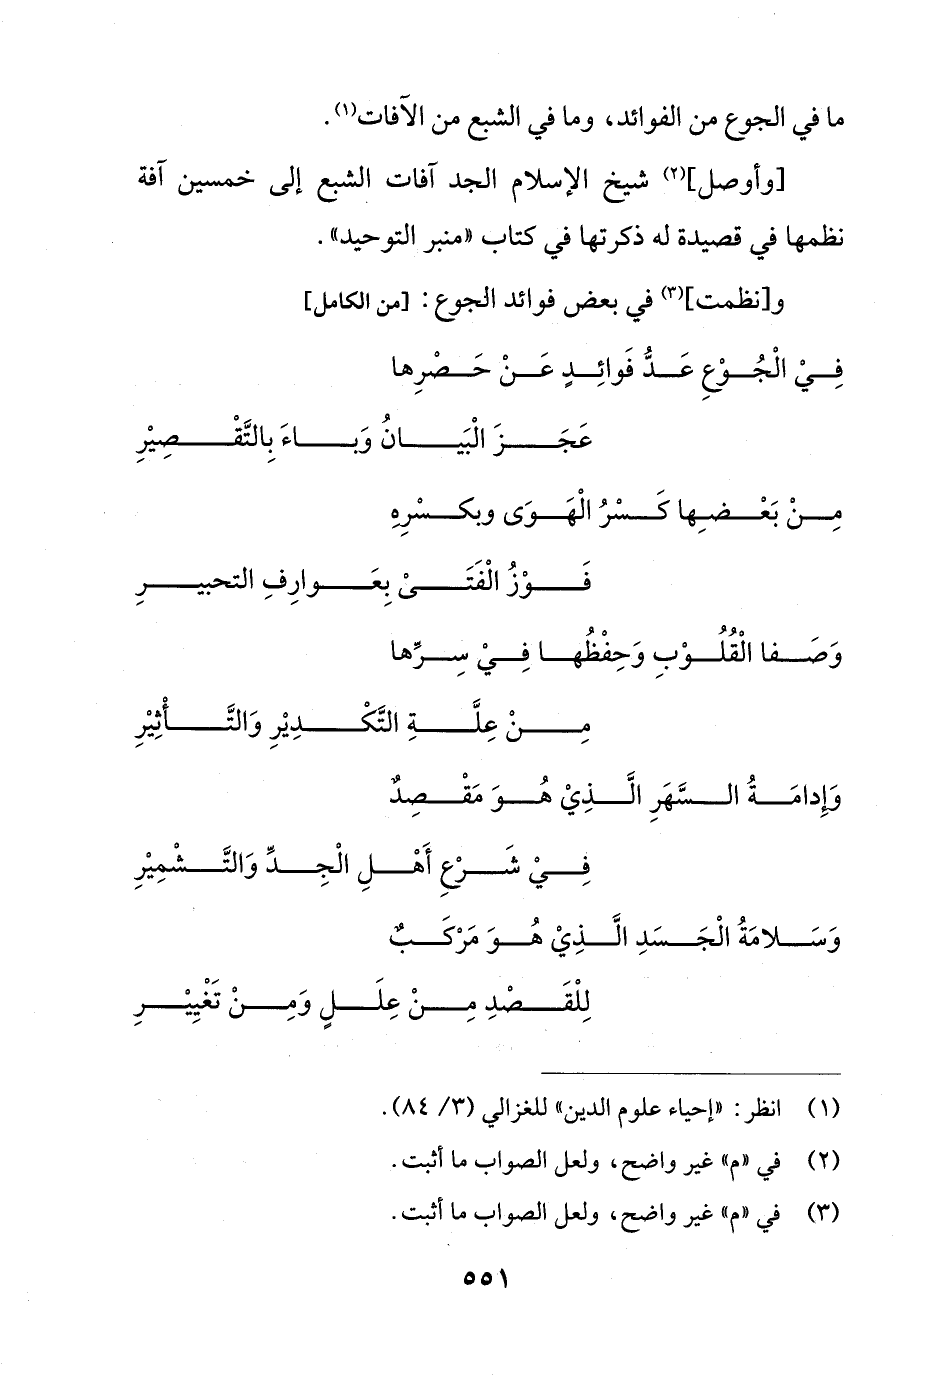 ما في الجوع من الفوائد، وما في الشبع من الآفات(١).
[وأوصل](٢) شيخ الإسلام الجد آفات الشبع إلى خمسين آفة
نظمها في قصيدة له ذكرتها في كتاب «منبر التوحيد».
و[نظمت](٣) في بعض فوائد الجوع: [من الكامل]
فِيْ الْجُوْعِ عَدُّ فَوائِدٍ عَنْ حَصْرِها
عَجَزَ الْبَيَانُ وَبَاءَ بِالتَّقْصِيْرِ
مِنْ بَعْضِها كَسْرُ الْهَوَى وبكسْرِهِ
فَوْزُ الْفَتَىْ بِعَوارِفِ التحبيرِ
وَصَفا الْقُلُوْبِ وَحِفْظُها فِيْ سِرِّها
مِنْ عِلَّةِ التَّكْدِيْرِ وَالتَّأْثِيْرِ
وَإِدامَةُ السَّهَرِ الَّذِيْ هُوَ مَقْصِدٌ
فِيْ شَرْعِ أَهْلِ الْجِدِّ وَالتَّشْمِيْرِ
وَسَلامَةُ الْجَسَدِ الَّذِيْ هُوَ مَرْكَبٌ
لِلْقَصْدِ مِنْ عِلَلٍ وَمِنْ تَغْيِيْرِ
(١) انظر: «إحياء علوم الدين» للغزالي (٣/ ٨٤).
(٢) في «م» غير واضح، ولعل الصواب ما أثبت.
(٣) في «م» غير واضح، ولعل الصواب ما أثبت.
٥٥١